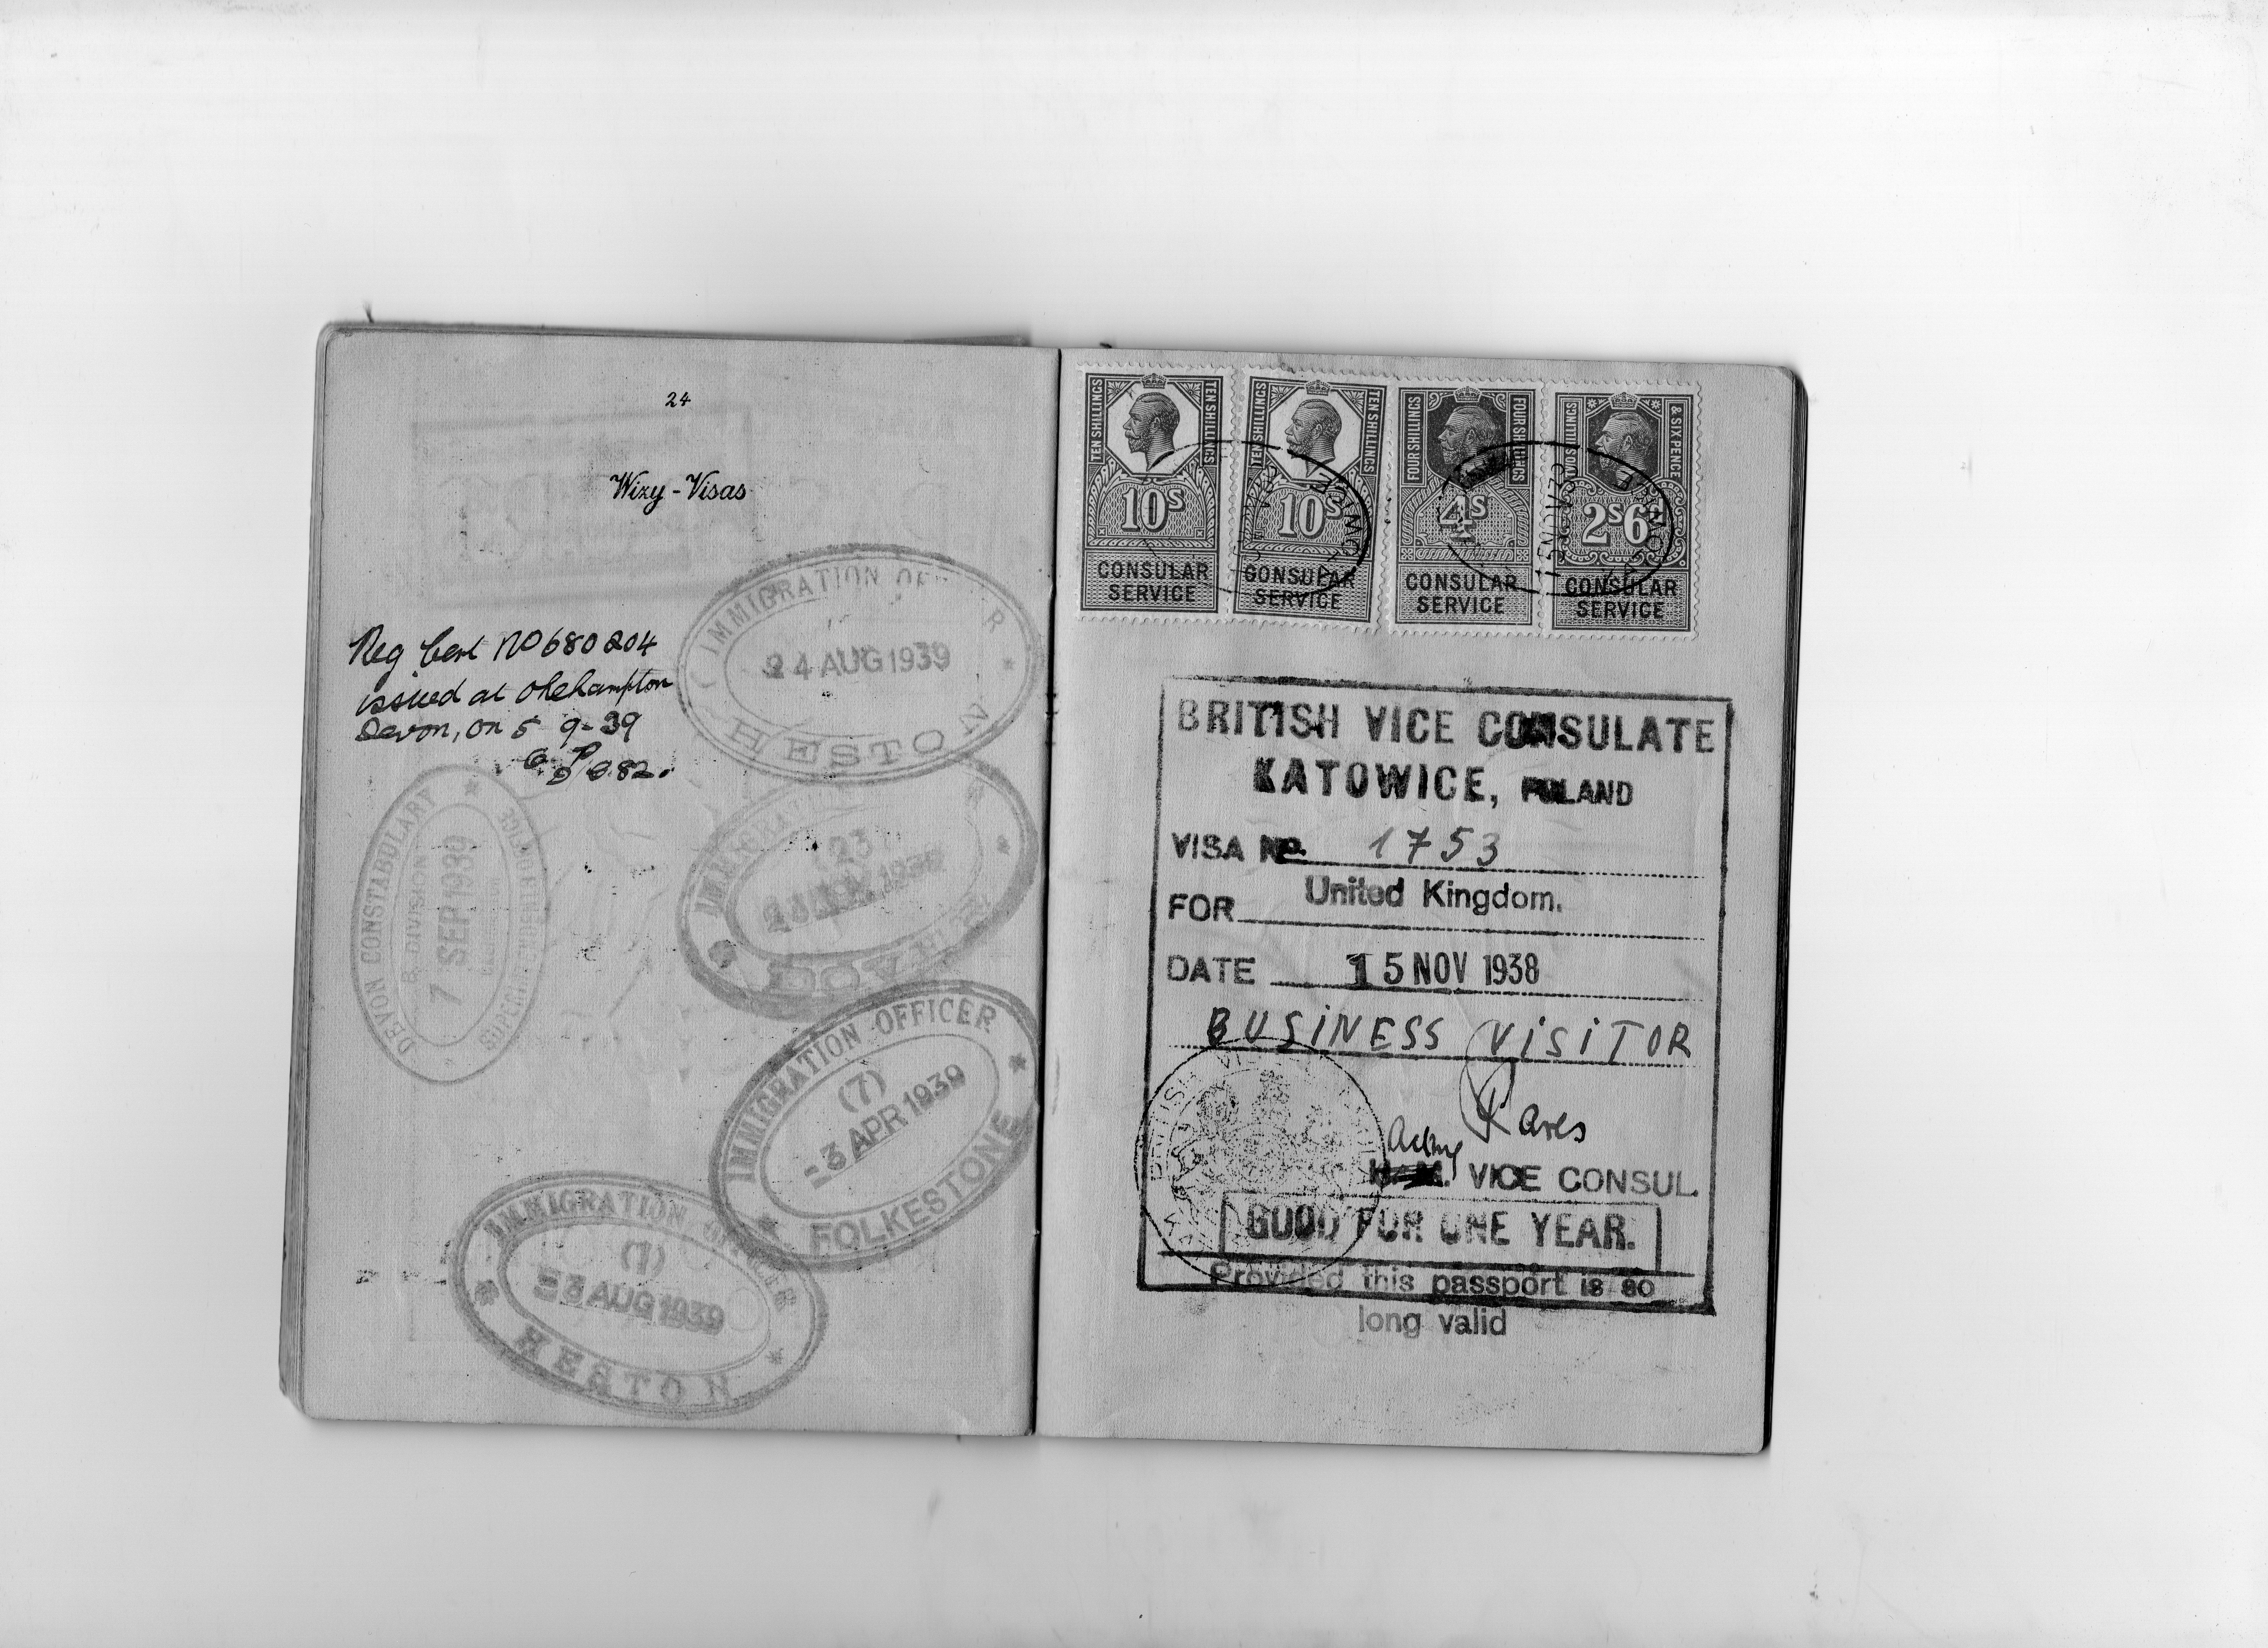 24
Wizy - Visas
IMMIGRATION OFFICER
24 AUG 1939
HESTON
Reg Cert No 680204
issued at Okehampton
Devon, on 5 9-39
DEVON CONSTABULARY
B. DIVISION
7 SEP 1939
IMMIGRATION
IMMIGRATION OFFICER
(7)
-3 APR 1939
FOLKESTONE
IMMIGRATION OFFICER
(1)
AUG 1939
HESTON
TEN SHILLINGS TEN SHILLINGS
10S
CONSULAR
SERVICE
TEN SHILLINGS TEN SHILLINGS
10S
CONSULAR
SERVICE
FOUR SHILLINGS FOUR SHILLINGS
4S
CONSULAR
SERVICE
TWO SHILLINGS & SIX PENCE
2S6D
CONSULAR
SERVICE
15 NOV 38
BRITISH VICE CONSULATE
KATOWICE, POLAND
VISA No. 1753
FOR United Kingdom.
DATE 15 NOV 1938
BUSINESS VISITOR
Acting
H.M. VICE CONSUL.
GOOD FOR ONE YEAR.
Provided this passport is so
long valid